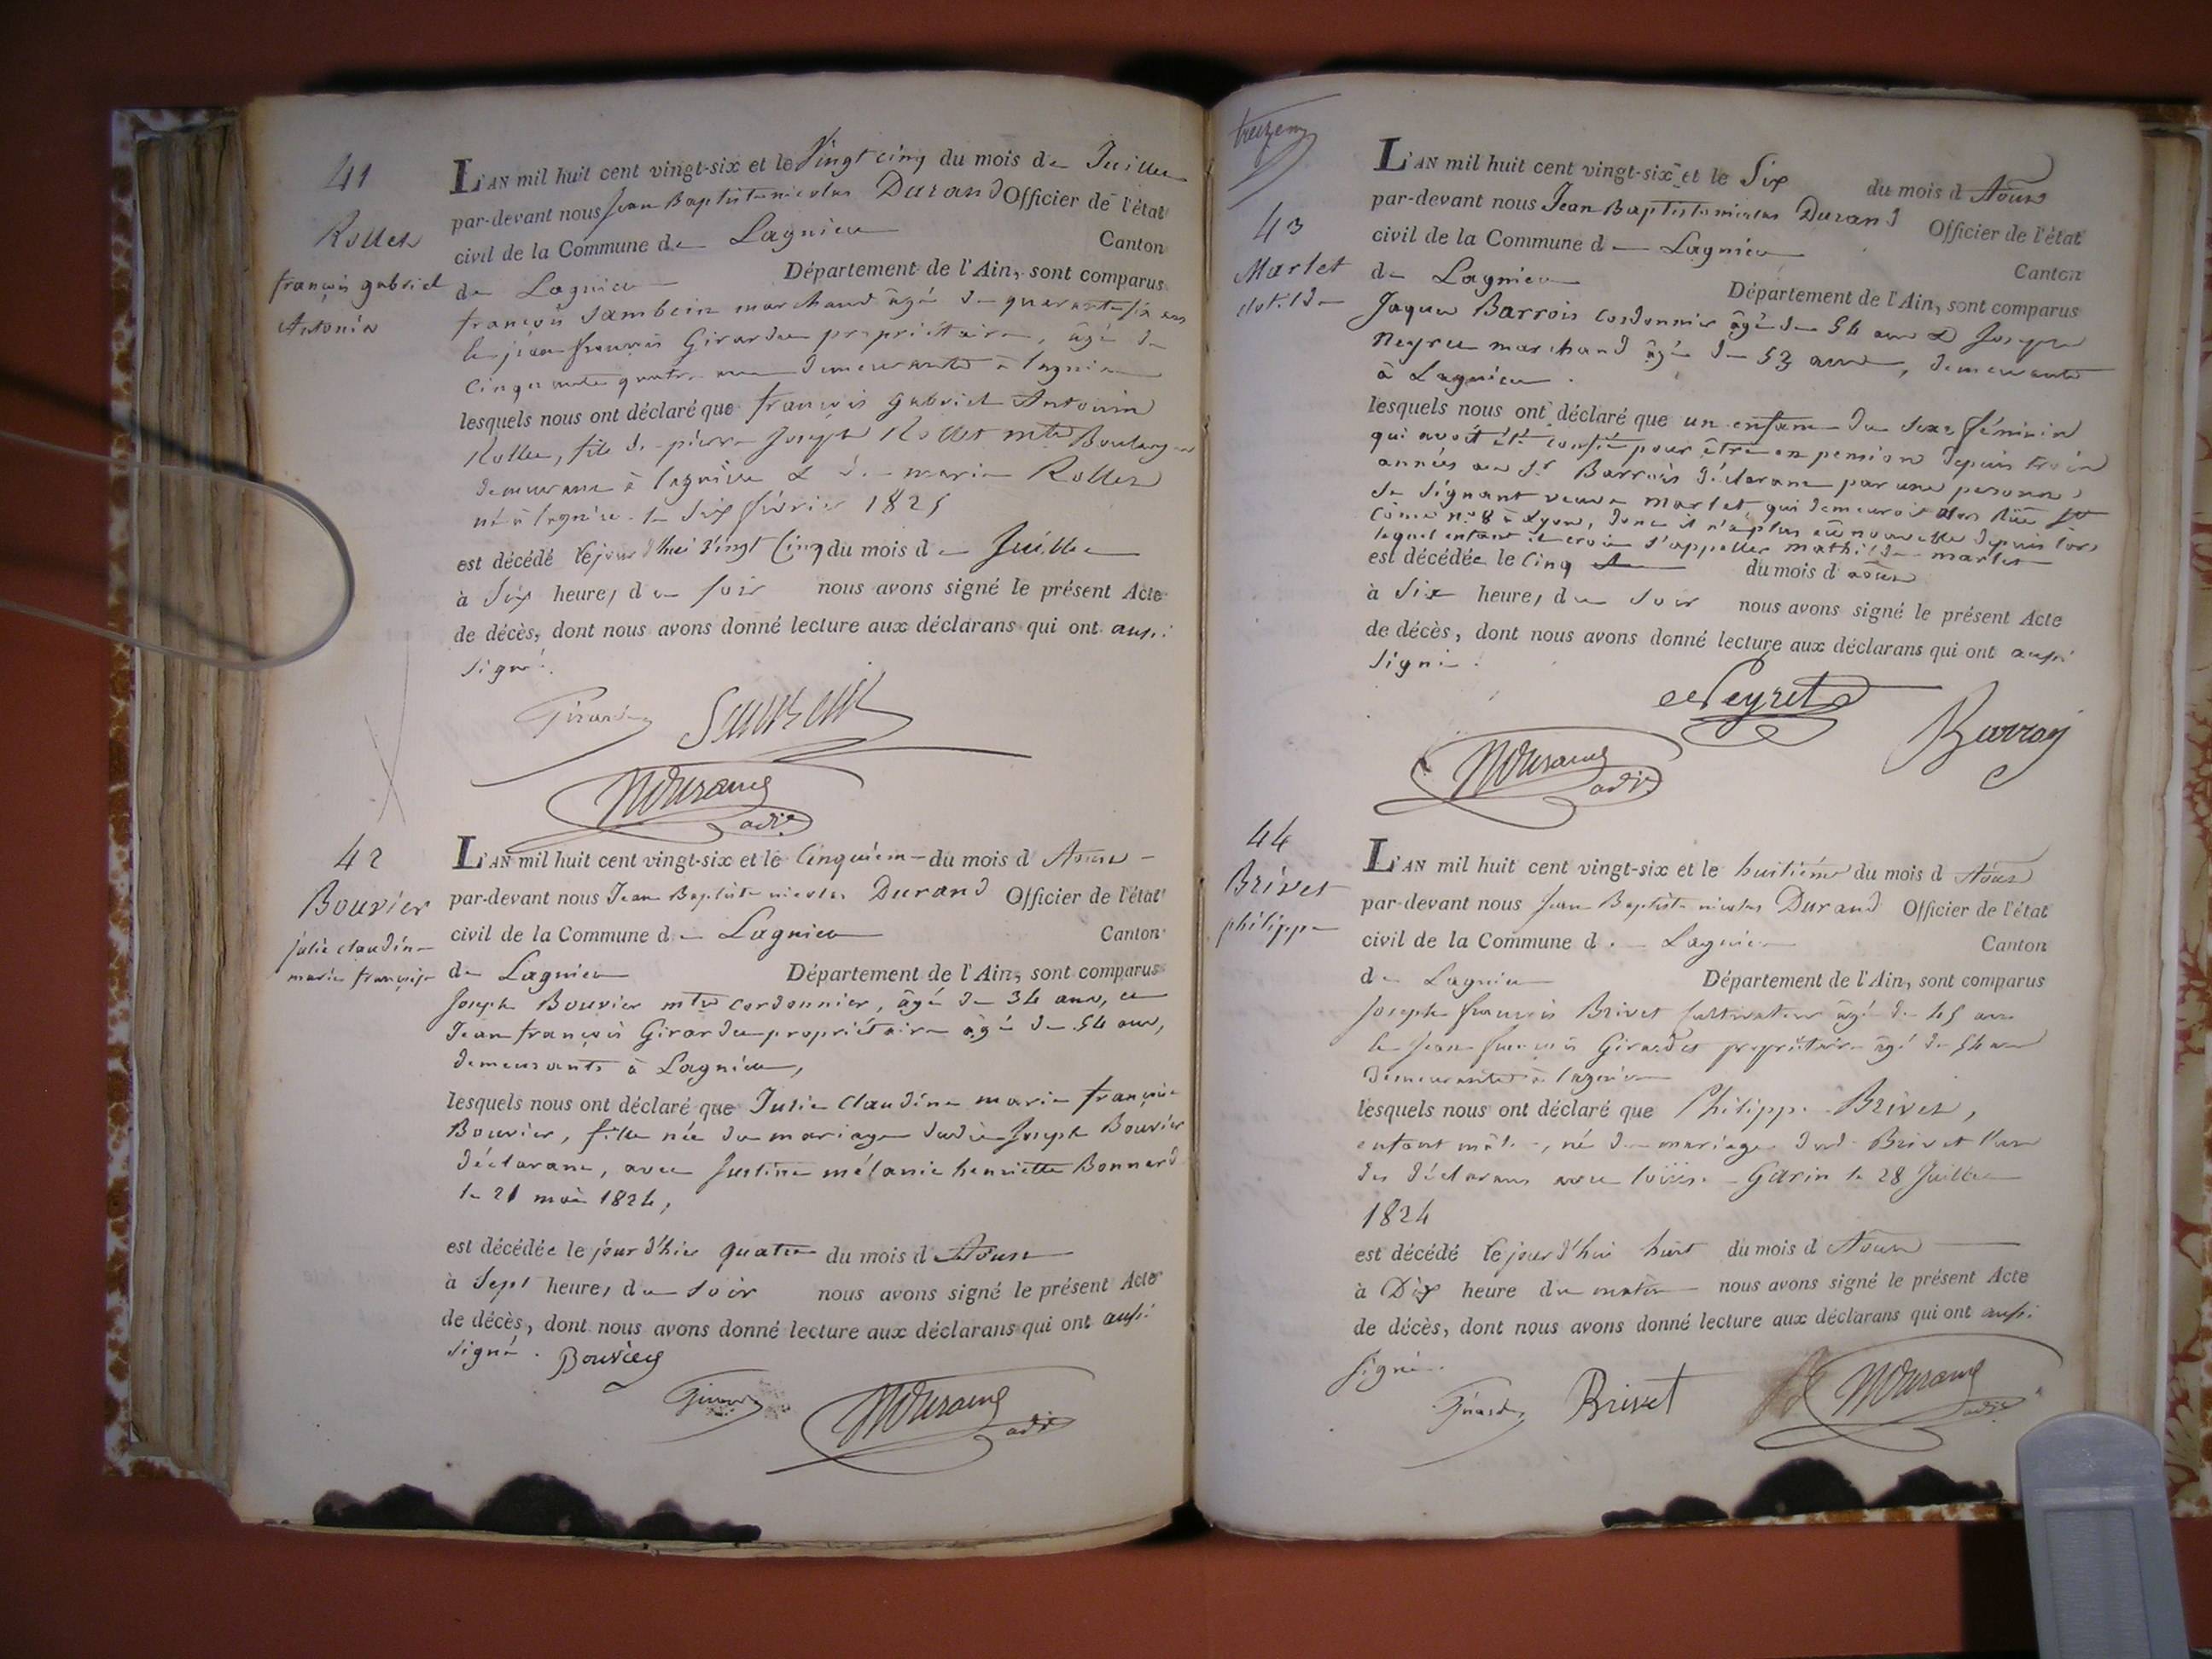 41
Rollet
françois gabriel
Antonin
L'AN mil huit cent vingt-six et le Vingt cinq du mois de Juillet
par-devant nous Jean Baptiste nicolas Durand Officier de l'état
civil de la Commune de Lagnieu Canton
de Lagnieu Département de l'Ain, sont comparus
françois Sambein marchand âgé de quarante six ans
& jean françois Girardet propriétaire, âgé de
cinquante quatre ans demeurants à Lagnieu
lesquels nous ont déclaré que françois gabriel Antonin
Rollet, fils de pierre Joseph Rollet mtre Boulanger
demeurant à lagnieu & de marie Rollet
né à lagnieu le six février 1825
est décédé cejourd'hui vingt cinq du mois de Juillet
à six heures du soir nous avons signé le présent Acte
de décès, dont nous avons donné lecture aux déclarans qui ont aussi
signé.
Girardet Sambein
NDurand
adjt
42
Bouvier
julie claudine
marie françoise
L'AN mil huit cent vingt-six et le Cinquième du mois d Aoust
par-devant nous Jean Baptiste nicolas Durand Officier de l'état
civil de la Commune de Lagnieu Canton
de Lagnieu Département de l'Ain, sont comparus
Joseph Bouvier mtre cordonnier, âgé de 34 ans, et
Jean françois Girardet propriétaire âgé de 54 ans,
demeurants à Lagnieu,
lesquels nous ont déclaré que Julie Claudine marie françoise
Bouvier, fille née du mariage dudit Joseph Bouvier
déclarant, avec Justine mélanie henriette Bonnard
le 21 mai 1824,
est décédée le jour d'hier quatre du mois d Aoust
à sept heures du soir nous avons signé le présent Acte
de décès, dont nous avons donné lecture aux déclarans qui ont aussi
signé. Bouvier
Girardet NDurand
adjt
treizieme
43
Marlet
clotilde
L'AN mil huit cent vingt-six et le Six du mois d Aoust
par-devant nous Jean Baptiste nicolas Durand Officier de l'état
civil de la Commune de Lagnieu Canton
de Lagnieu Département de l'Ain, sont comparus
Jaques Barrois cordonnier âgé de 54 ans & Joseph
Neyret marchand âgé de 53 ans, demeurants
à Lagnieu.
lesquels nous ont déclaré que un enfant du sexe féminin
qui avoit été confié pour être en pension depuis trois
années au Sr Barrois déclarant par une personne
se signant veuve marlet qui demeuroit alors Rüe St
Côme n° 8 à Lyon, dont il n'a plus eü nouvelle depuis lors
lequel enfant il croit s'appeller mathilde marlet
est décédée le cinq du mois d aoust
à six heures du soir nous avons signé le présent Acte
de décès, dont nous avons donné lecture aux déclarans qui ont aussi
signé.
Neyret
Barroy
NDurand
adjt
44
Brivet
philippe
L'AN mil huit cent vingt-six et le huitième du mois d Aoust
par-devant nous Jean Baptiste nicolas Durand Officier de l'état
civil de la Commune de Lagnieu Canton
de Lagnieu Département de l'Ain, sont comparus
Joseph françois Brivet cultivateur âgé de 45 ans
& Jean françois Girardet propriétaire âgé de 54 ans
demeurants à lagnieu
lesquels nous ont déclaré que Philippe Brivet,
enfant mâle, né du mariage dud. Brivet l'un
des déclarans avec loüise Garin le 28 Juillet
1824
est décédé cejourd'hui huit du mois d Aoust
à Dix heure du matin nous avons signé le présent Acte
de décès, dont nous avons donné lecture aux déclarans qui ont aussi
signé.
Girardet Brivet NDurand
adjt